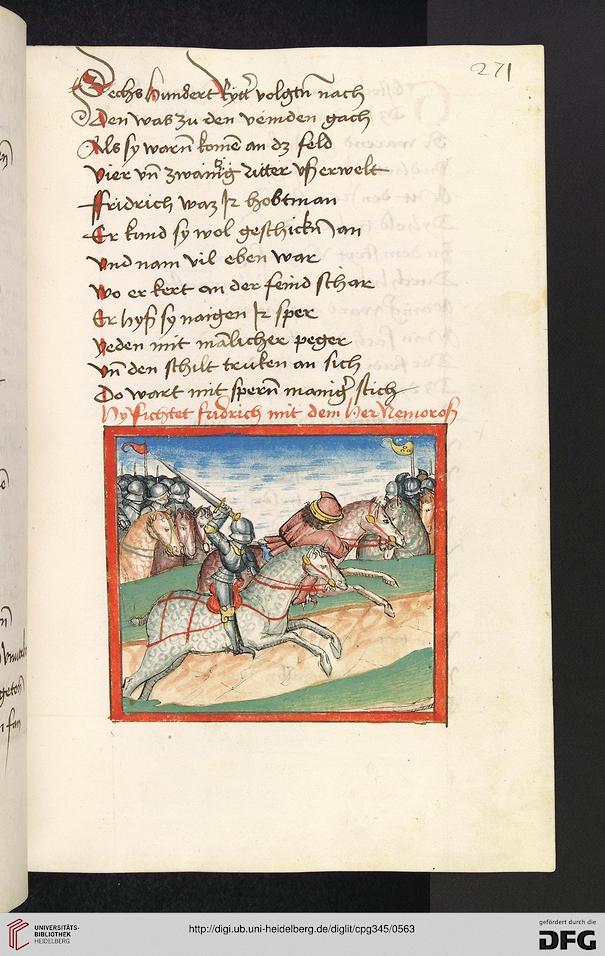 271
Sechs hundert Rytt̄ volgtn̄ nach
Den was zu den veinden gach
Als sy warn̄ komē an dz feld
Vier vn̄ zwainczig Ritter vßerwelt
Fridrich waz Ir hobtman
Er kund sy wol geschickn̄ an
Vnd nam vil eben war
Wo er kert an der feind schar
Er hyß sy naigen Ir sper
Yeden mit mālicher peger
Vn̄ den schilt truken an sich
Do wart mit spern̄ maniḡ stich
Hy fichtet fridrich mit dem her Nemoroß
UNIVERSITÄTS-
BIBLIOTHEK
HEIDELBERG
http://digi.ub.uni-heidelberg.de/diglit/cpg345/0563
gefördert durch die
DFG